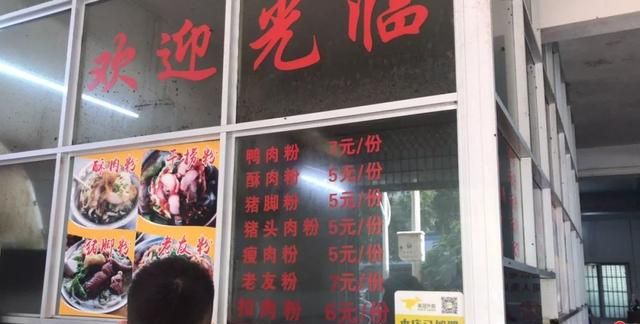 欢迎光临
酥肉粉
干捞粉
猪脚粉
老友粉
鸭肉粉 7元/份
酥肉粉 5元/份
猪脚粉 5元/份
猪头肉粉 5元/份
瘦肉粉 5元/份
老友粉 7元/份
扣肉粉 6元/份
美团外卖
本店已加盟